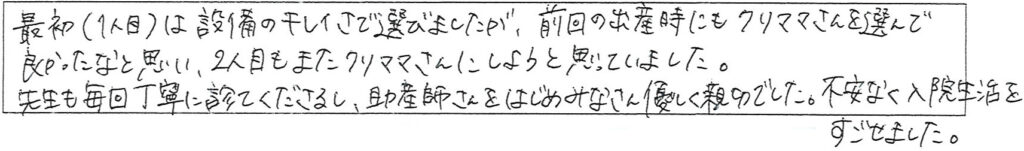 最初(1人目)は設備のキレイさで選びましたが、前回の出産時にもクリママさんを選んで
良かったなと思い、2人目もまたクリママさんにしようと思っていました。
先生も毎回丁寧に診てくださるし、助産師さんをはじめみなさん優しく親切でした。不安なく入院生活を
すごせました。